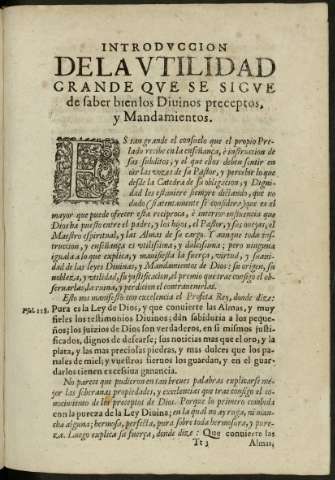 INTRODVCCION
DE LA VTILIDAD
GRANDE QVE SE SIGVE
de saber bien los Diuinos preceptos,
y Mandamientos.
ES tan grande el consuelo que el propio Pre-
lado recibe en la enseñança, è instruccion de
sus subditos, y el que ellos deben sentir en
oir las vozes de su Pastor, y percibir lo que
desde la Catedra de su obligacion, y Digni-
dad les estuuiere siempre dictando, que no
dudo (si atentamente se considera) que es el
mayor que puede ofrecer esta reciproca, è interior influencia que
Dios ha puesto entre el padre, y los hijos, el Pastor, y sus ovejas, el
Maestro espiritual, y las Almas de su cargo. Y aunque toda ins-
truccion, y enseñança es vtilissima, y dulcissima; pero ninguna
iguala a lo que explica, y manifiesta la fuerça, virtud, y suavi-
dad de las leyes Diuinas, y Mandamientos de Dios; su origen, su
nobleza, y vtilidad, su justificacion, el premio que trae consigo el ob-
seruarlas, la ruina, y perdicion el contravenirlas.
Esto nos manifestò con excelencia el Profeta Rey, donde dize:
Psal. 118. Pura es la Ley de Dios, y que conuierte las Almas, y muy
fieles los testimonios Diuinos; dàn sabiduria a los peque-
ños; los juizios de Dios son verdaderos, en si mismos justi-
ficados, dignos de dessearse; sus noticias mas que el oro, y la
plata, y las mas preciosas piedras, y mas dulces que los pa-
nales de miel; y vuestros siervos los guardan, y en el guar-
darlos tienen excessiua ganancia.
No parece que pudieron en tan breues palabras explicarse me-
jor las soberanas propiedades, y excelencias que trae consigo el co-
nocimiento de los preceptos de Dios. Porque lo primero combida
con la pureza de la Ley Diuina; en la qual no ay ruga, ni man-
cha alguna; hermosa, perfecta, pura sobre toda hermosura, y pu-
reza. Luego explica su fuerça, donde dize: Que conuierte las
Tt 3 Almas,